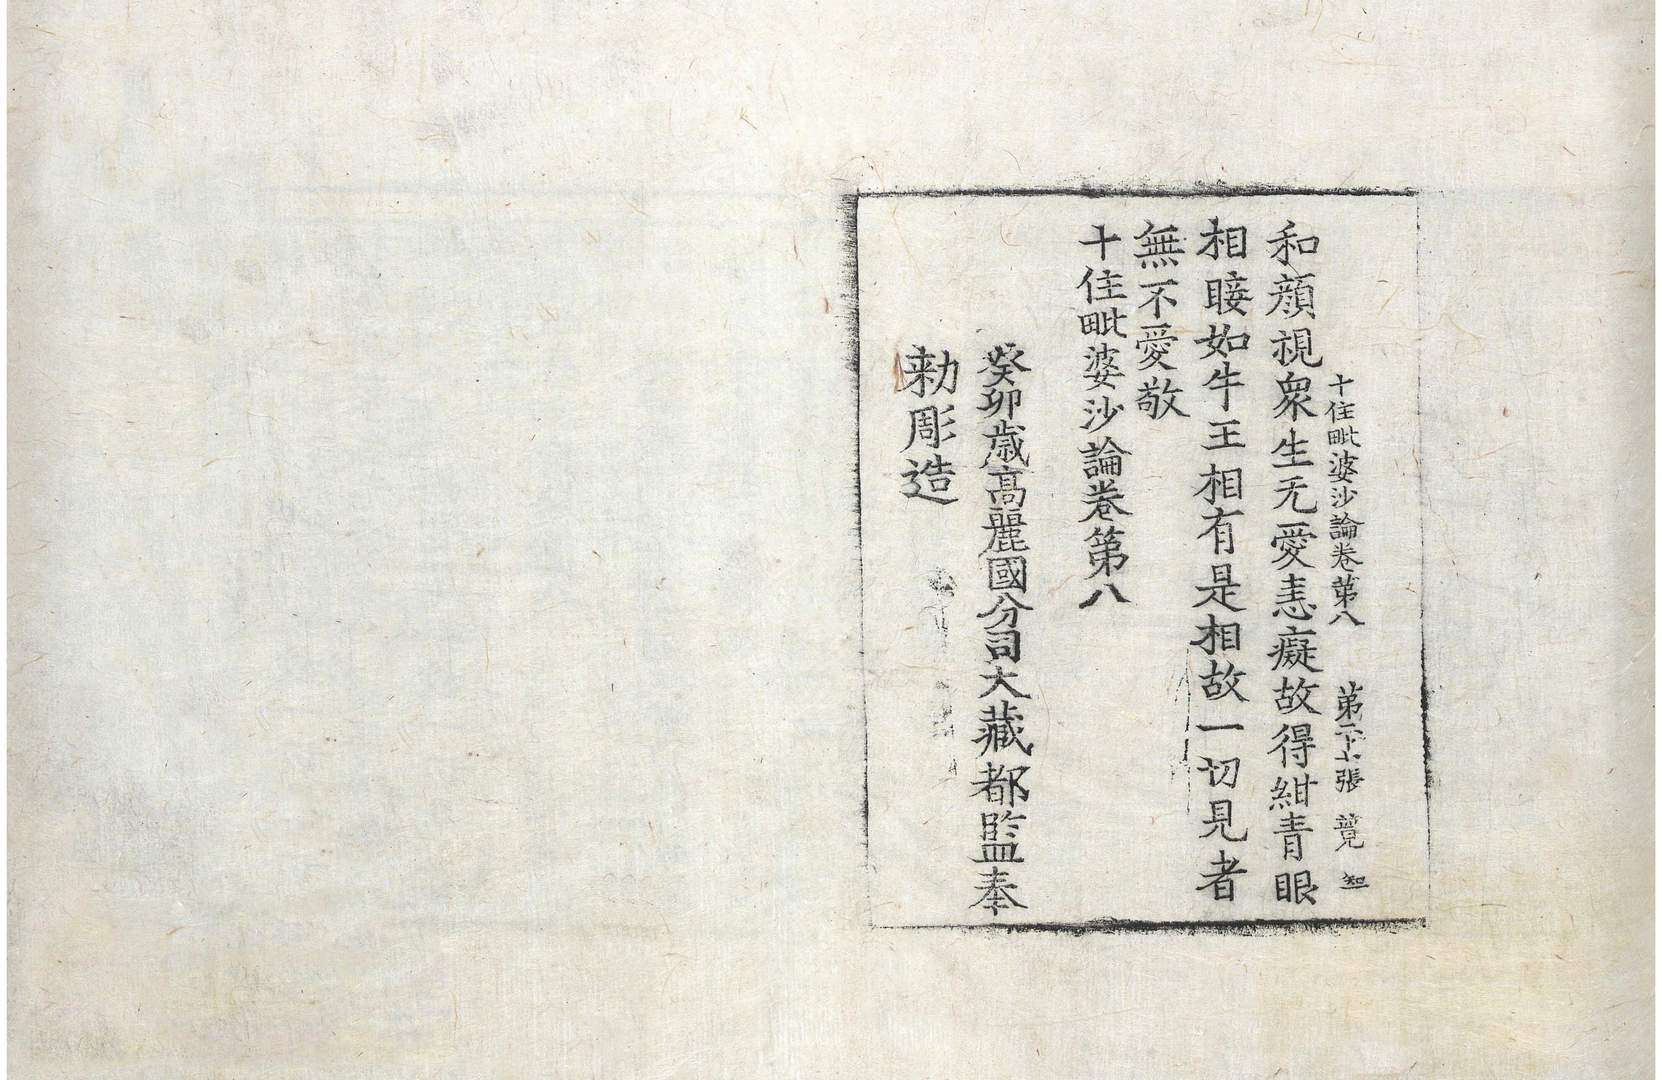 十住毗婆沙論卷第八 第二十七張 競 知
和顔視衆生无愛恚癡故得紺青眼
相睫如牛王相有是相故一切見者
無不愛敬
十住毗婆沙論卷第八
癸卯歳高麗國分司大藏都監奉
勅彫造